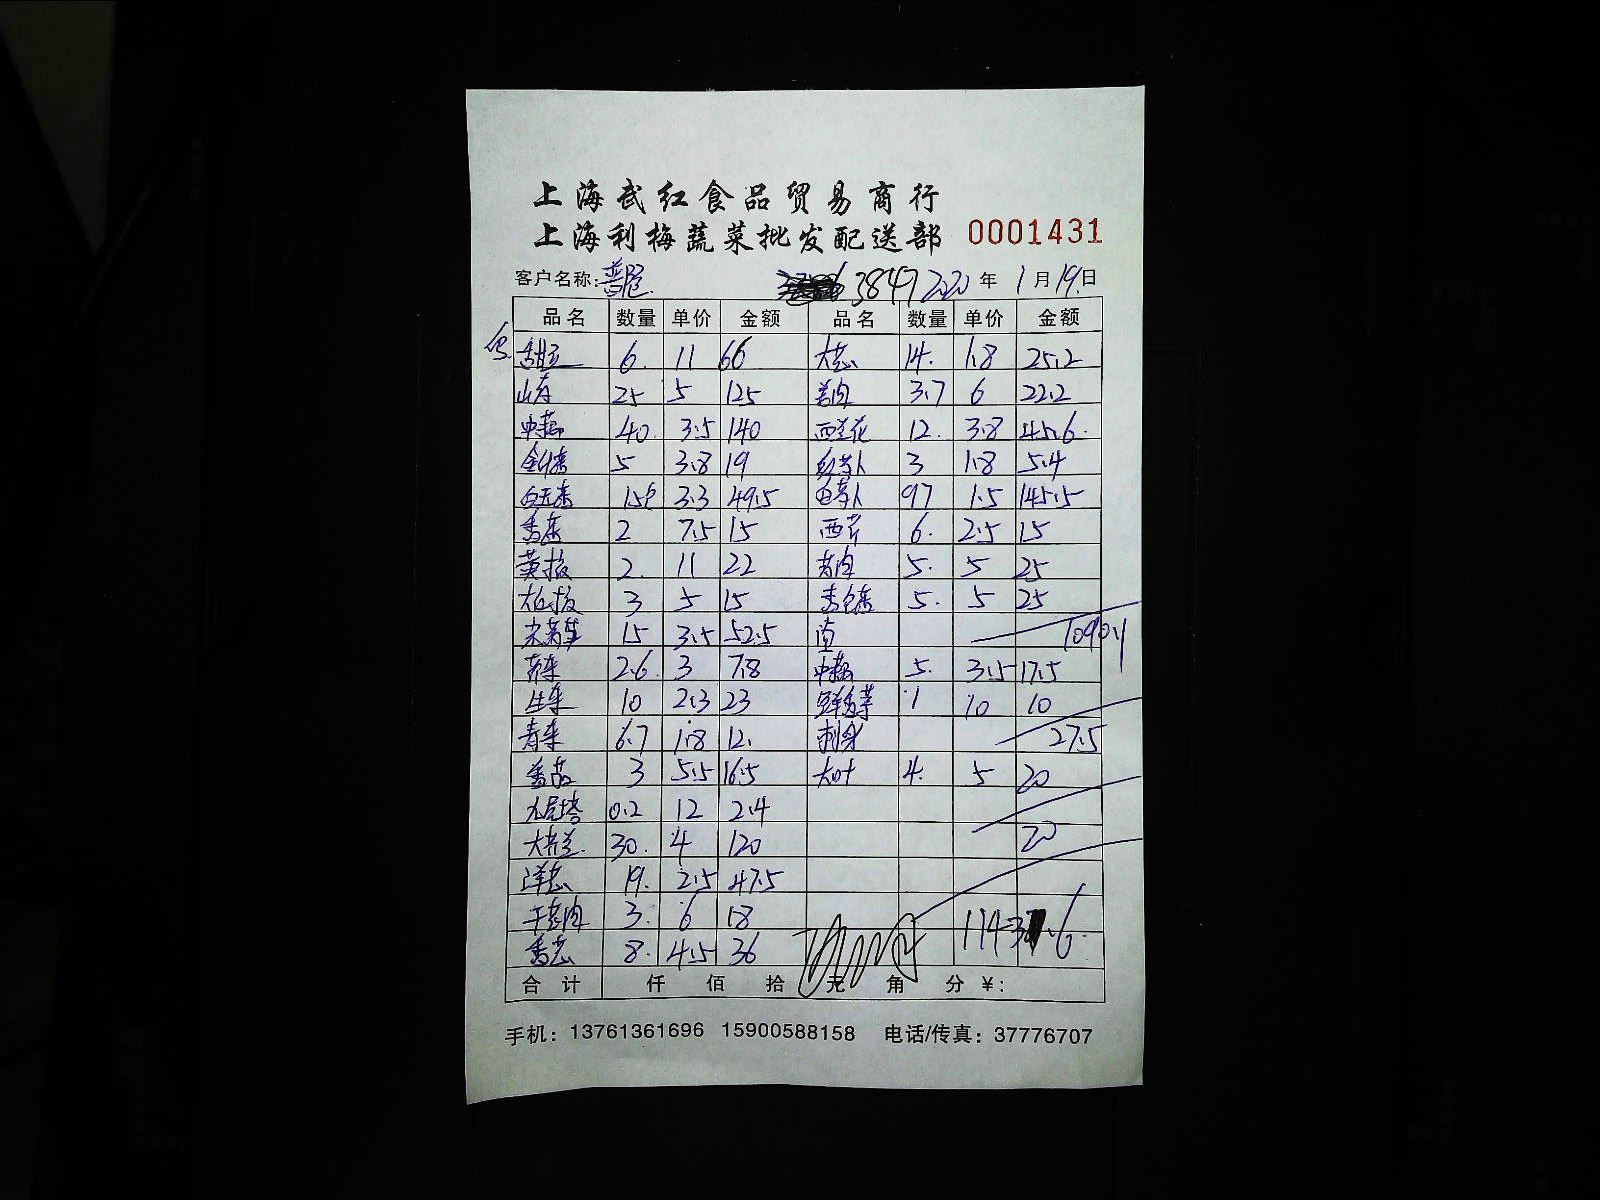 上海武红食品贸易商行
上海利梅蔬菜批发配送部 0001431
客户名称: 3847 2020年1月19日
品名 数量 单价 金额 品名 数量 单价 金额
甜豆 6. 11 66 大葱 14. 1.8 25.2
山药 25 5 125 姜肉 3.7 6 22.2
中菇 40. 3.5 140 西兰花 12. 3.8 45.6.
金针菇 5 3.8 19 红萝卜 3 1.8 5.4
白玉菇 15包 3.3 49.5 白萝卜 97 1.5 145.5
香菜 2 7.5 15 西芹 6. 2.5 15
黄椒 2. 11 22 姜肉 5. 5 25
大红椒 3 5 15 杏包菇 5. 5 25
3 15 3.5 52.5 1090.4
2.6 3 7.8 中菇 5. 3.5 17.5
生菜 10 2.3 23 1 10 10
青菜 6.7 1.8 12. 刺身 27.5
番茄 3 5.5 16.5 大叶 4. 5 20
九层塔 0.2 12 2.4
30. 4 120 20
洋葱 19. 2.5 47.5
干葱肉 3. 6 18
香葱 8. 4.5 36
合计 仟 佰 拾 元 角 分 ¥:
手机: 13761361696 15900588158 电话/传真: 37776707